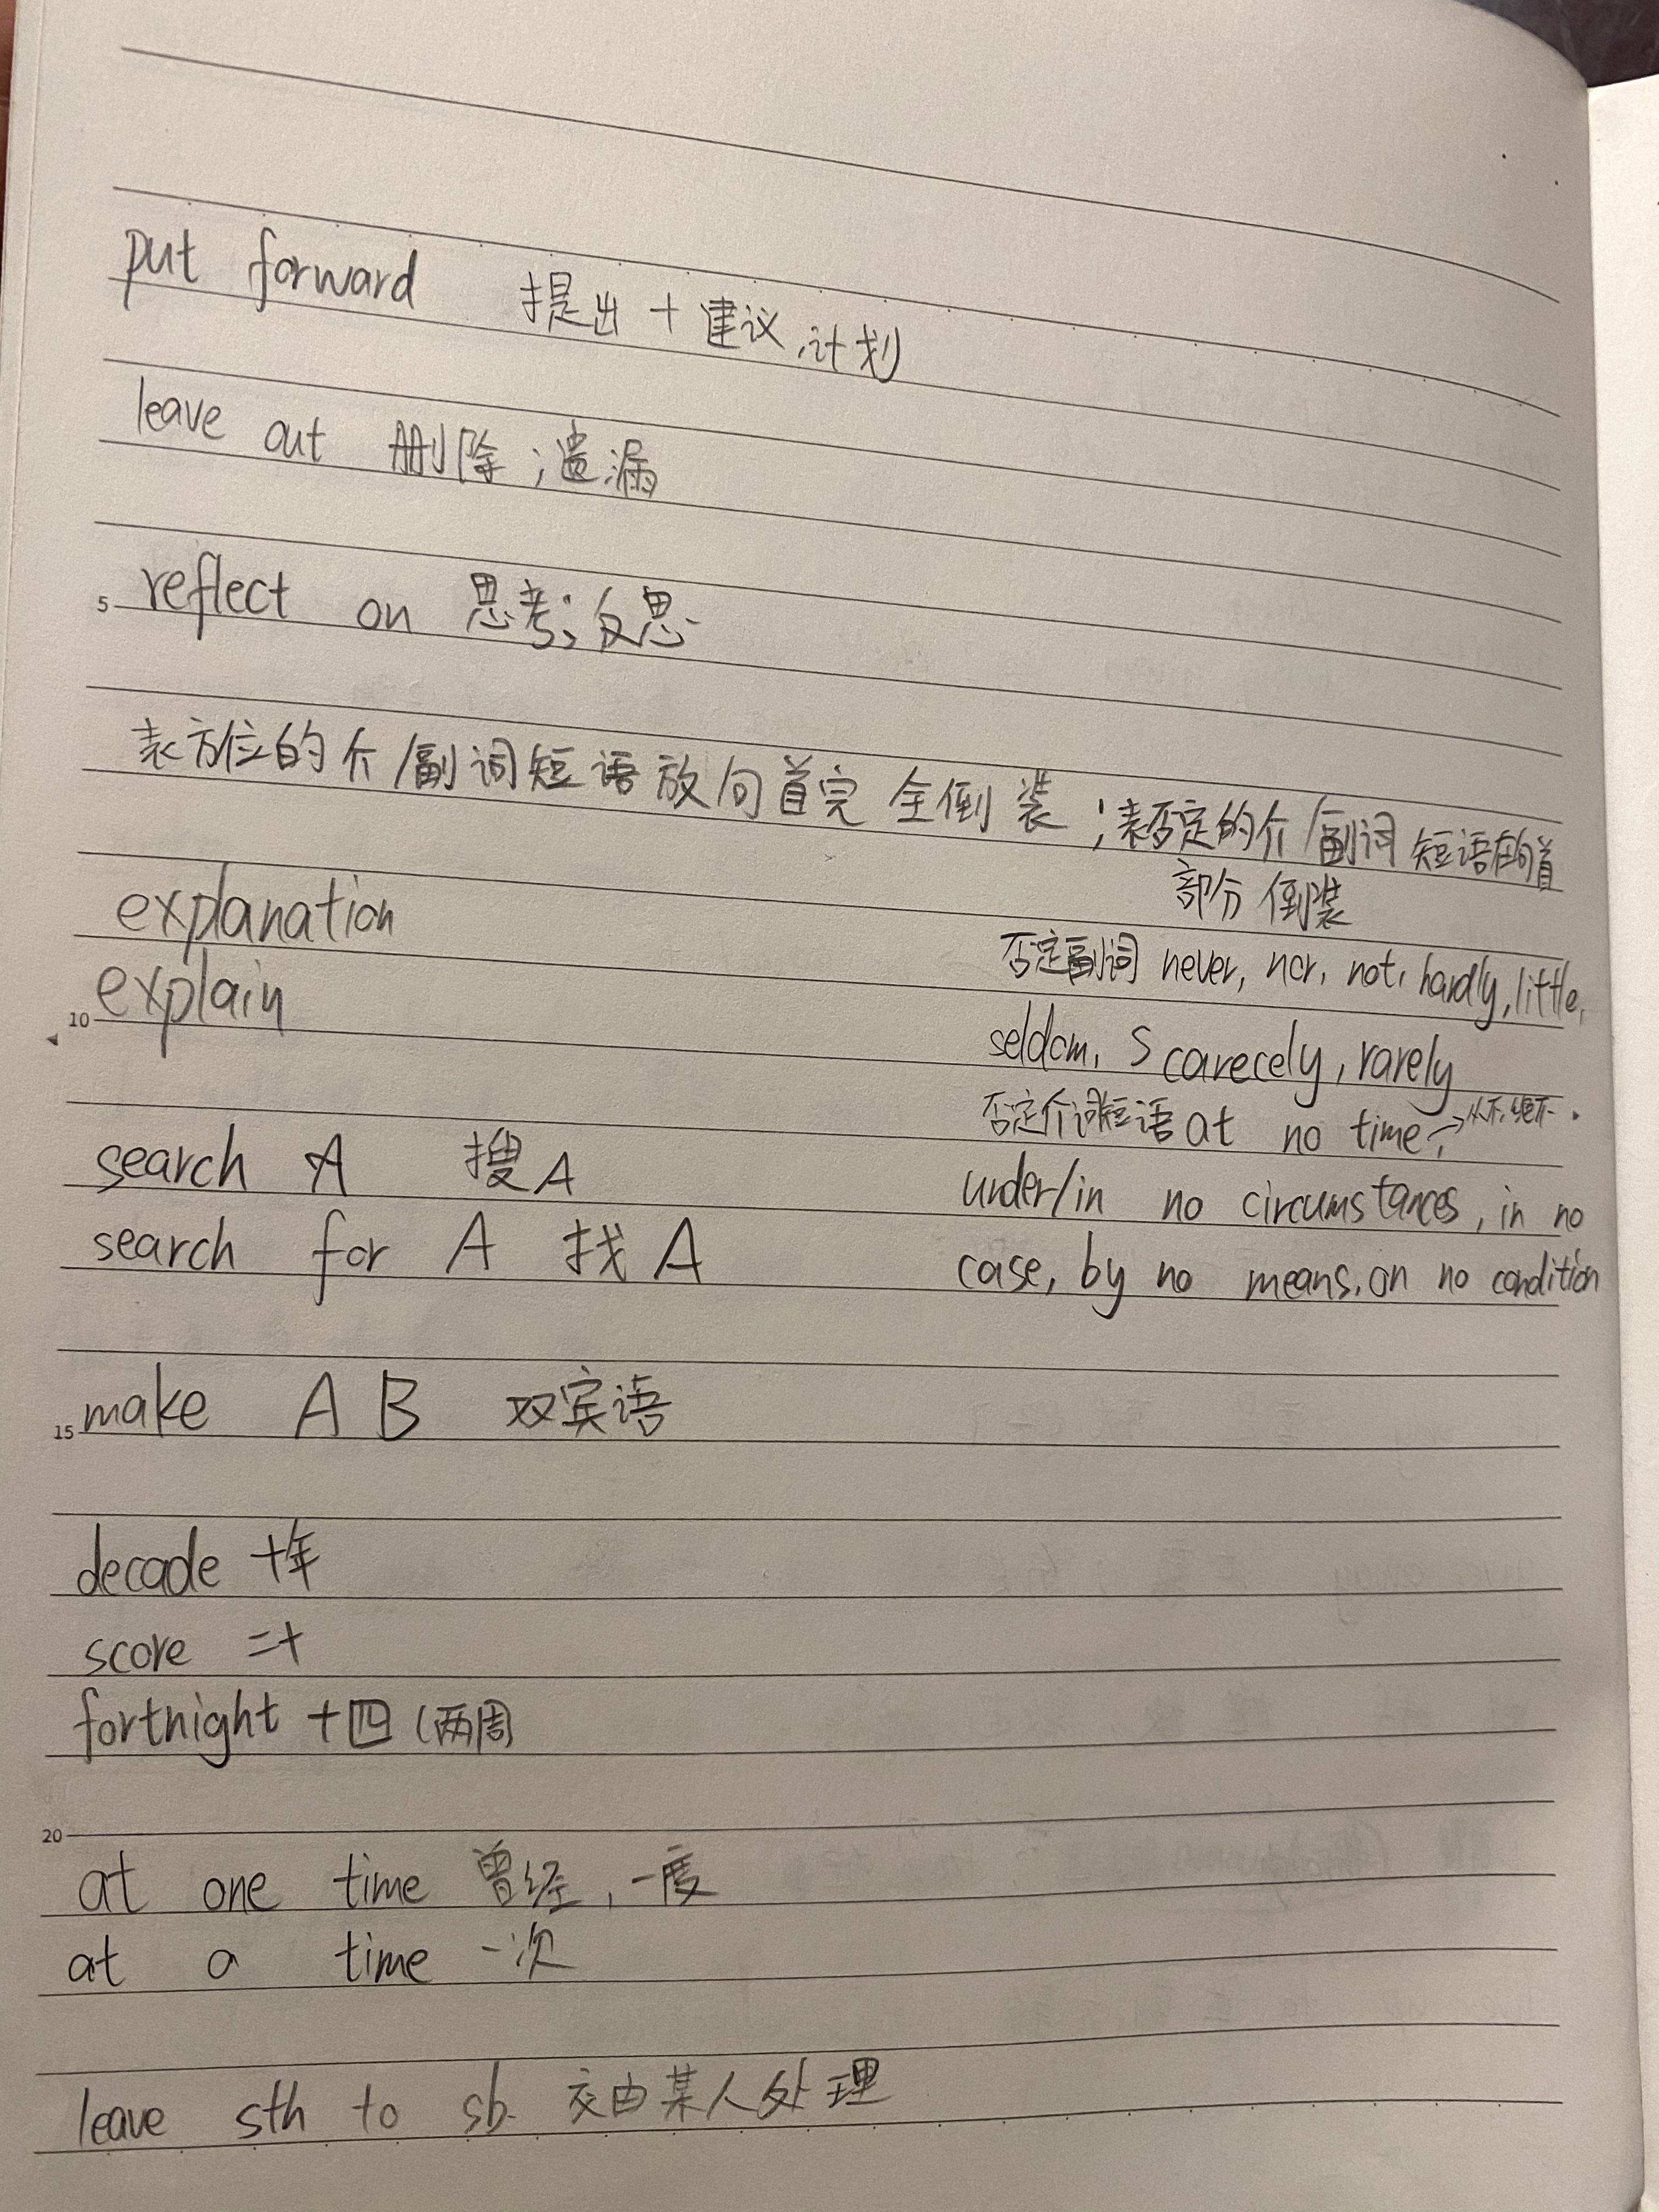 put forward 提出 + 建议 计划
leave out 删除；遗漏
5
reflect on 思考；反思
表方位的介/副词短语放句首完全倒装；表否定的介/副词短语在句首
部分倒装
explanation
否定副词 never, nor, not, hardly, little,
10
explain
seldom, scarecely, rarely
search A 搜A
否定介词短语 at no time, →从不
under/in no circumstances, in no
search for A 找A
case, by no means, on no condition
15
make A B 双宾语
decade 十年
score 二十
fortnight 十四 (两周
20
at one time 曾经，一度
at a time 一次
leave sth to sb. 交由某人处理